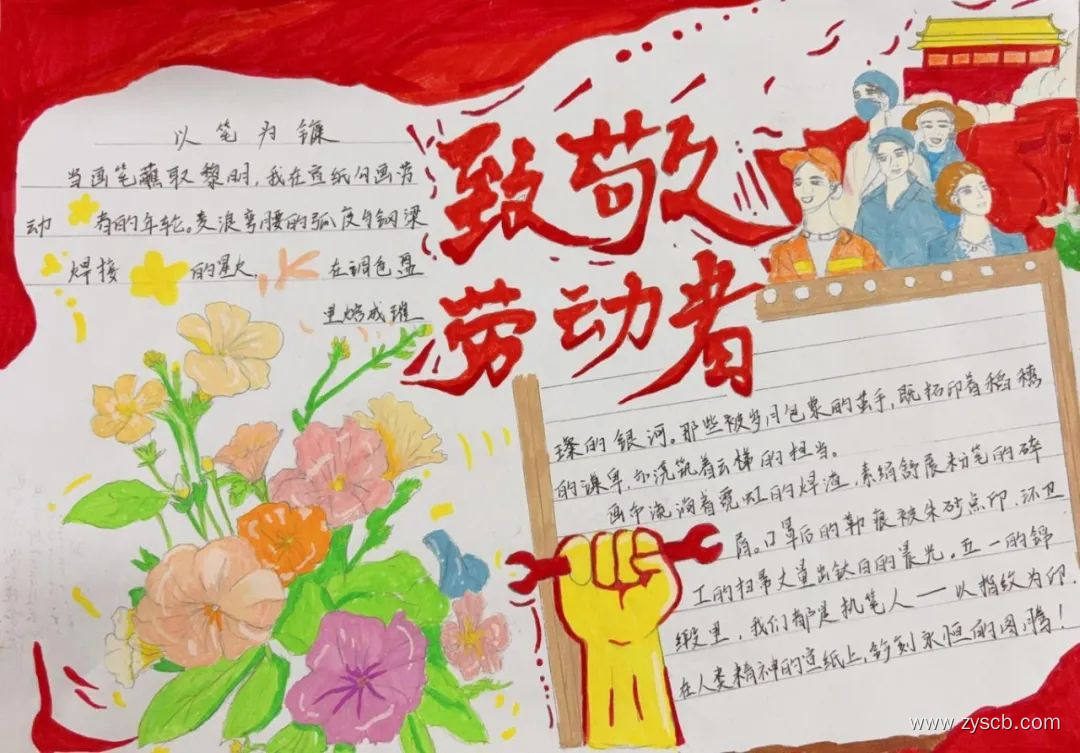 致敬
劳动者
以笔为镰
当画笔蘸取黎明，我在宣纸勾画劳
动 者的年轮。麦浪弯腰的弧度与钢梁
焊接 的星火， 在调色盘
里熔成璀
璨的银河。那些被岁月包浆的茧手，既拓印着稻穗
的谦卑，亦浇筑着云梯的担当。
画布流淌着霓虹的焊渣，素绢舒展粉笔的碎
屑。口罩后的勒痕被朱砂点印，环卫
工的扫帚丈量出钛白的晨光。五一的锦
缎里，我们都是执笔人——以指纹为印，
在人类精神的宣纸上，钤刻永恒的图腾！
www.zyscb.com